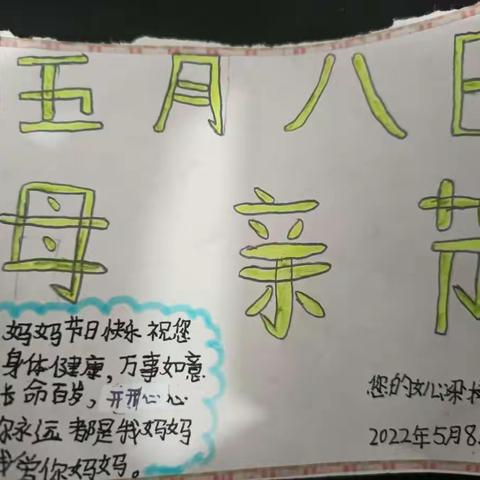 五月八日
母亲节
妈妈节日快乐祝您
身体健康,万事如意
长命百岁,开开心心
你永远都是我妈妈
我爱你妈妈。
您的女儿
2022年5月8